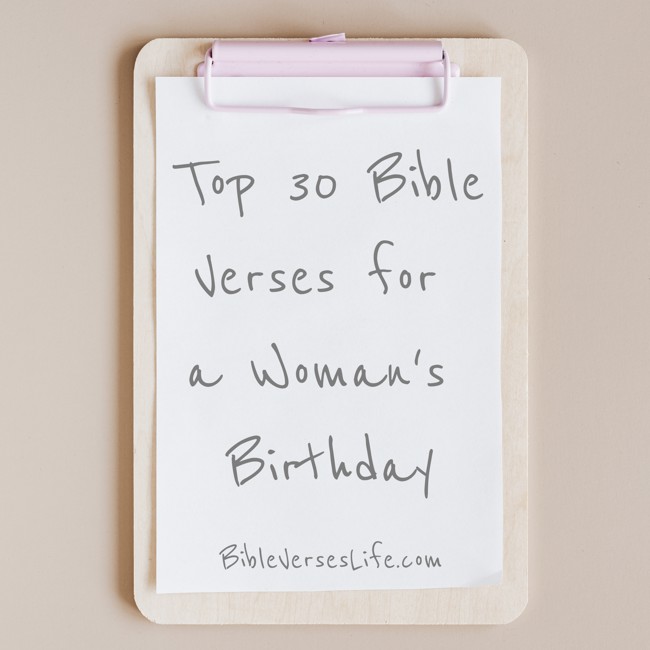 Top 30 Bible
Verses for
a Woman's
Birthday
BibleVersesLife.com